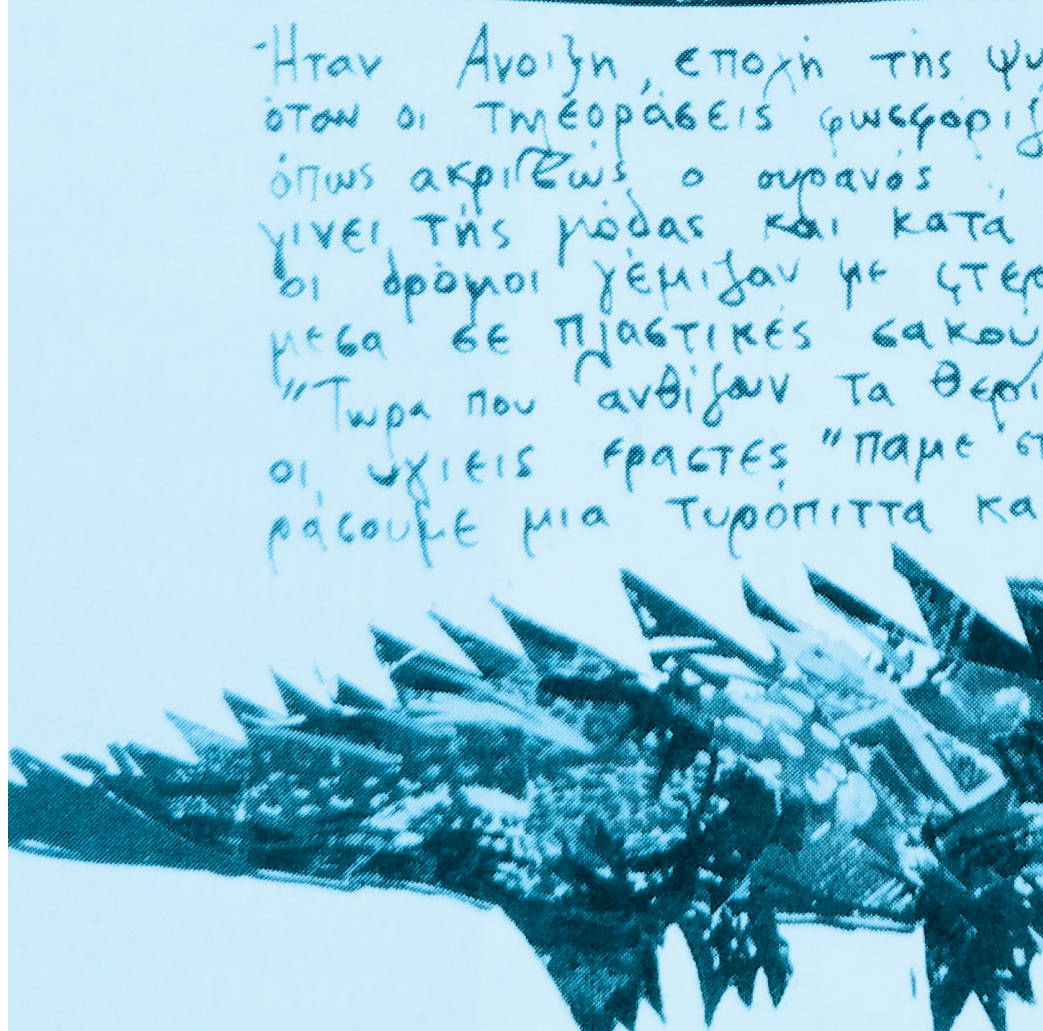 Ήταν Ανοιξη, εποχή τής ψυ
όταν οι τηλεοράσεις φωσφόριζ
όπως ακριβώς ο ουρανός
γίνει τής μόδας και κατά
οι δρόμοι γέμιζαν με φτερ
μέσα σε πλαστικές σακου
"Τωρα που ανθίζουν τα θερι
οι υγιείς εραστές "παμε στ
ράσουμε μια τυρόπιττα κα